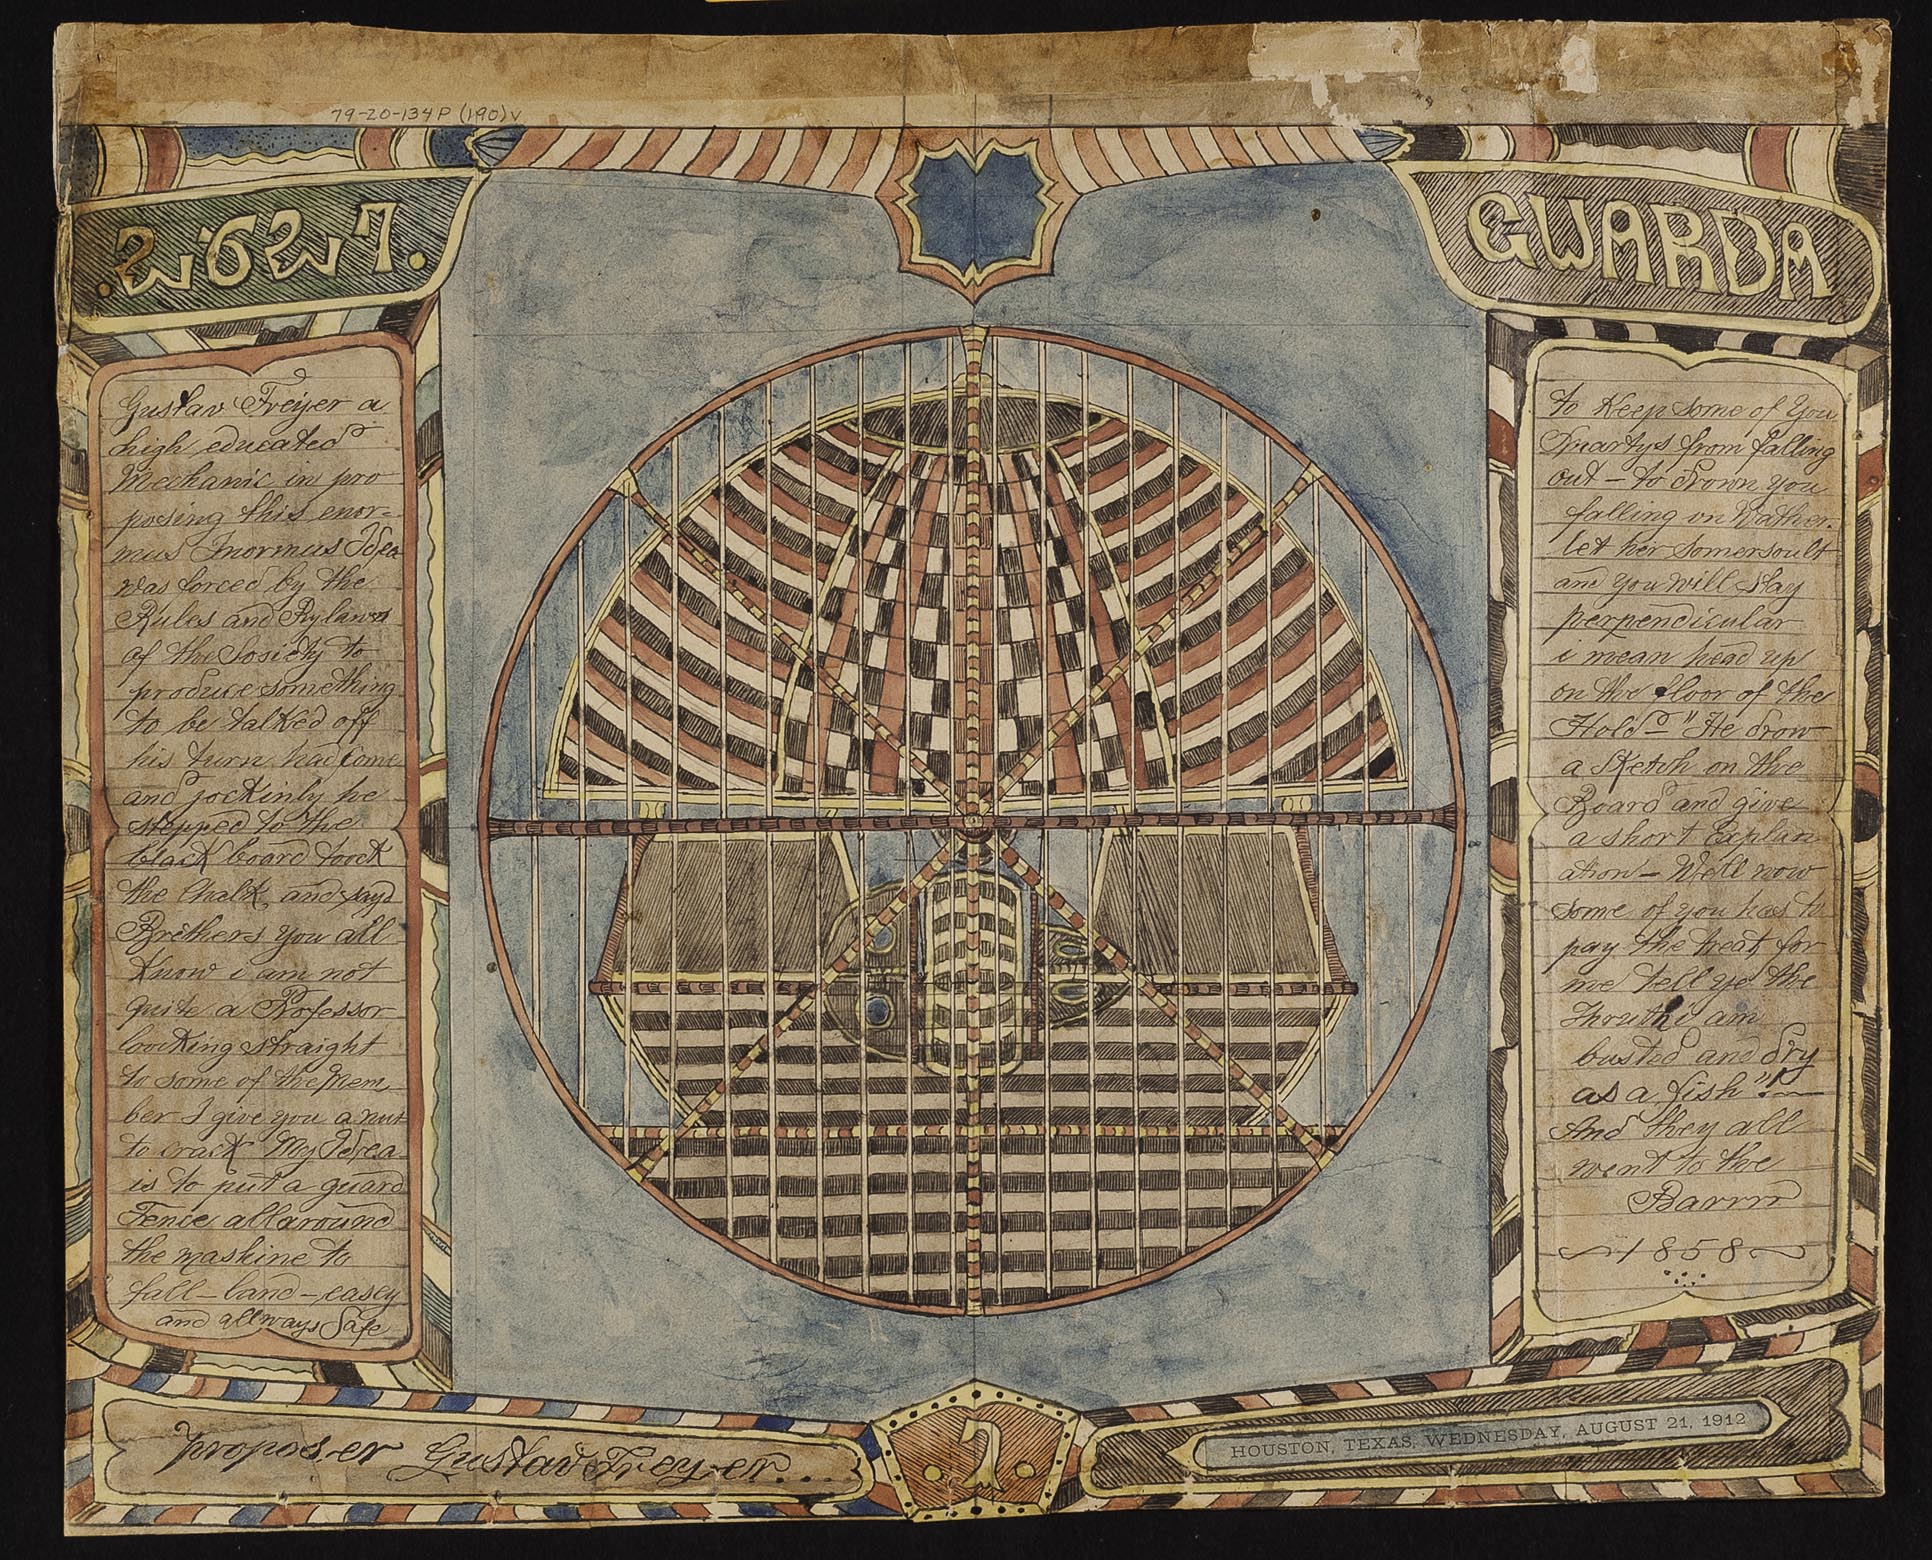 79-20-134P (190)v
GUARDA
Gustav Freÿer a
high educated
Mechanic in pro
posing this enor=
mus Inormus Idea
was forced by the
Rules and Bylaws
of the Sosiety to
produce something
to be talked off
his turn had come
and jockinly he
stepped to the
black board toock
the Chalk, and sayd
Brothers you all
Know i am not
quite a Professor
loocking straight
to some of the Mem
ber I give you a nut
to crack My Idea
is to put a guard
Fence all around
the mashine to
fall – land – easey
and allways Safe
to Keep some of You
Smartys from falling
out – to drown you
falling on Wather.
let her Somersoult
and you will stay
perpendicular
i mean head up
on the floor of the
Hold – " He drow
a Sketch on the
Board and give
a short Explan
ation – Well now
some of you has to
pay the treat for
me tell ye the
Thruth i am
busted and dry
as a fish"!
And they all
went to the
Barrrr
1858
proposer Gustav Freyer...
1
HOUSTON, TEXAS, WEDNESDAY, AUGUST 21, 1912